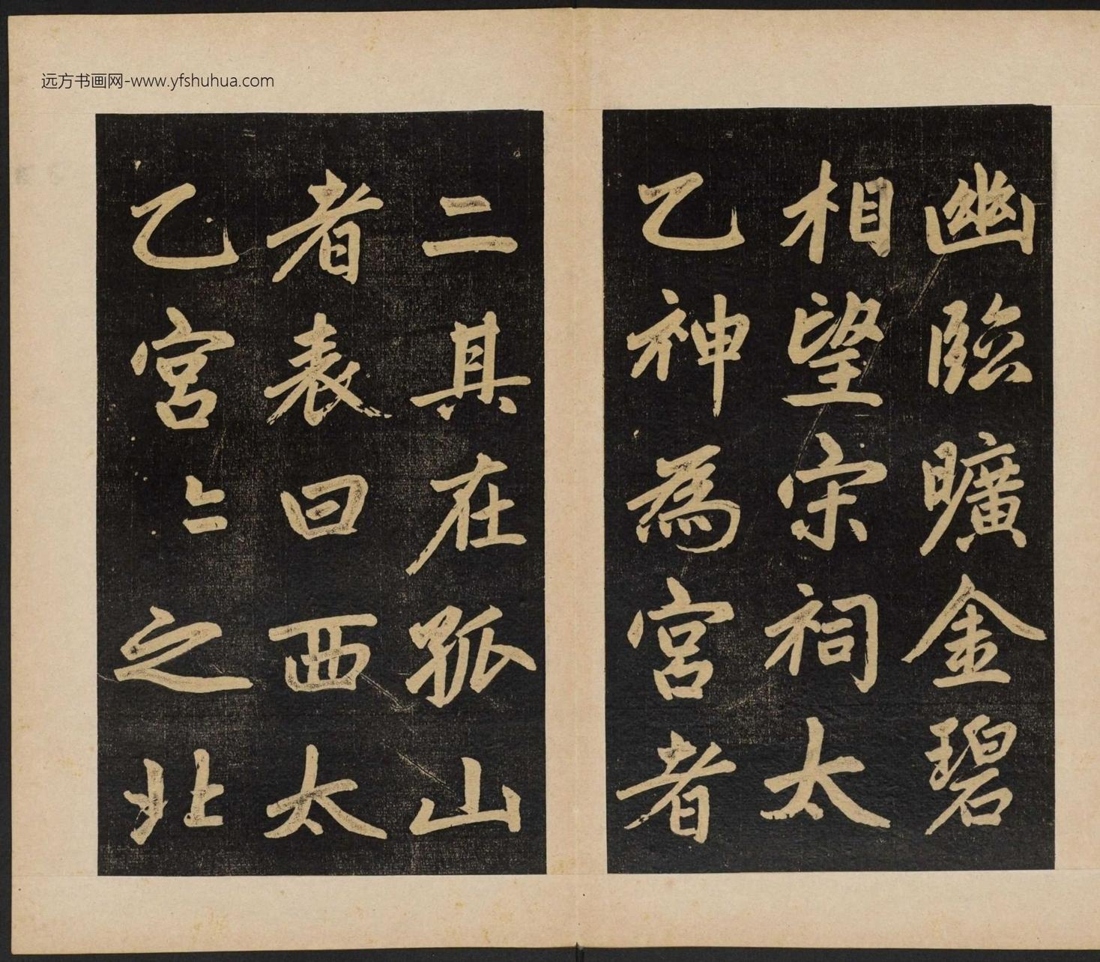 远方书画网-www.yfshuhua.com
幽臨曠金碧
相望宋祠太
乙神為宮者
二其在孤山
者表曰西太
乙宮〻之北